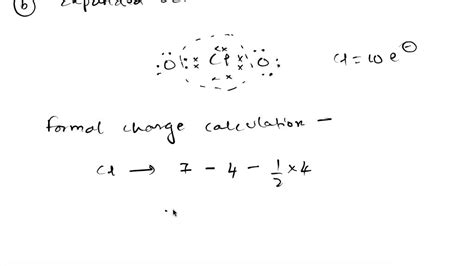 (b) Expanded oc
:Ö: Cl :Ö: Cl = 10 e⊖
Formal charge calculation –
Cl → 7 - 4 - 1/2 × 4